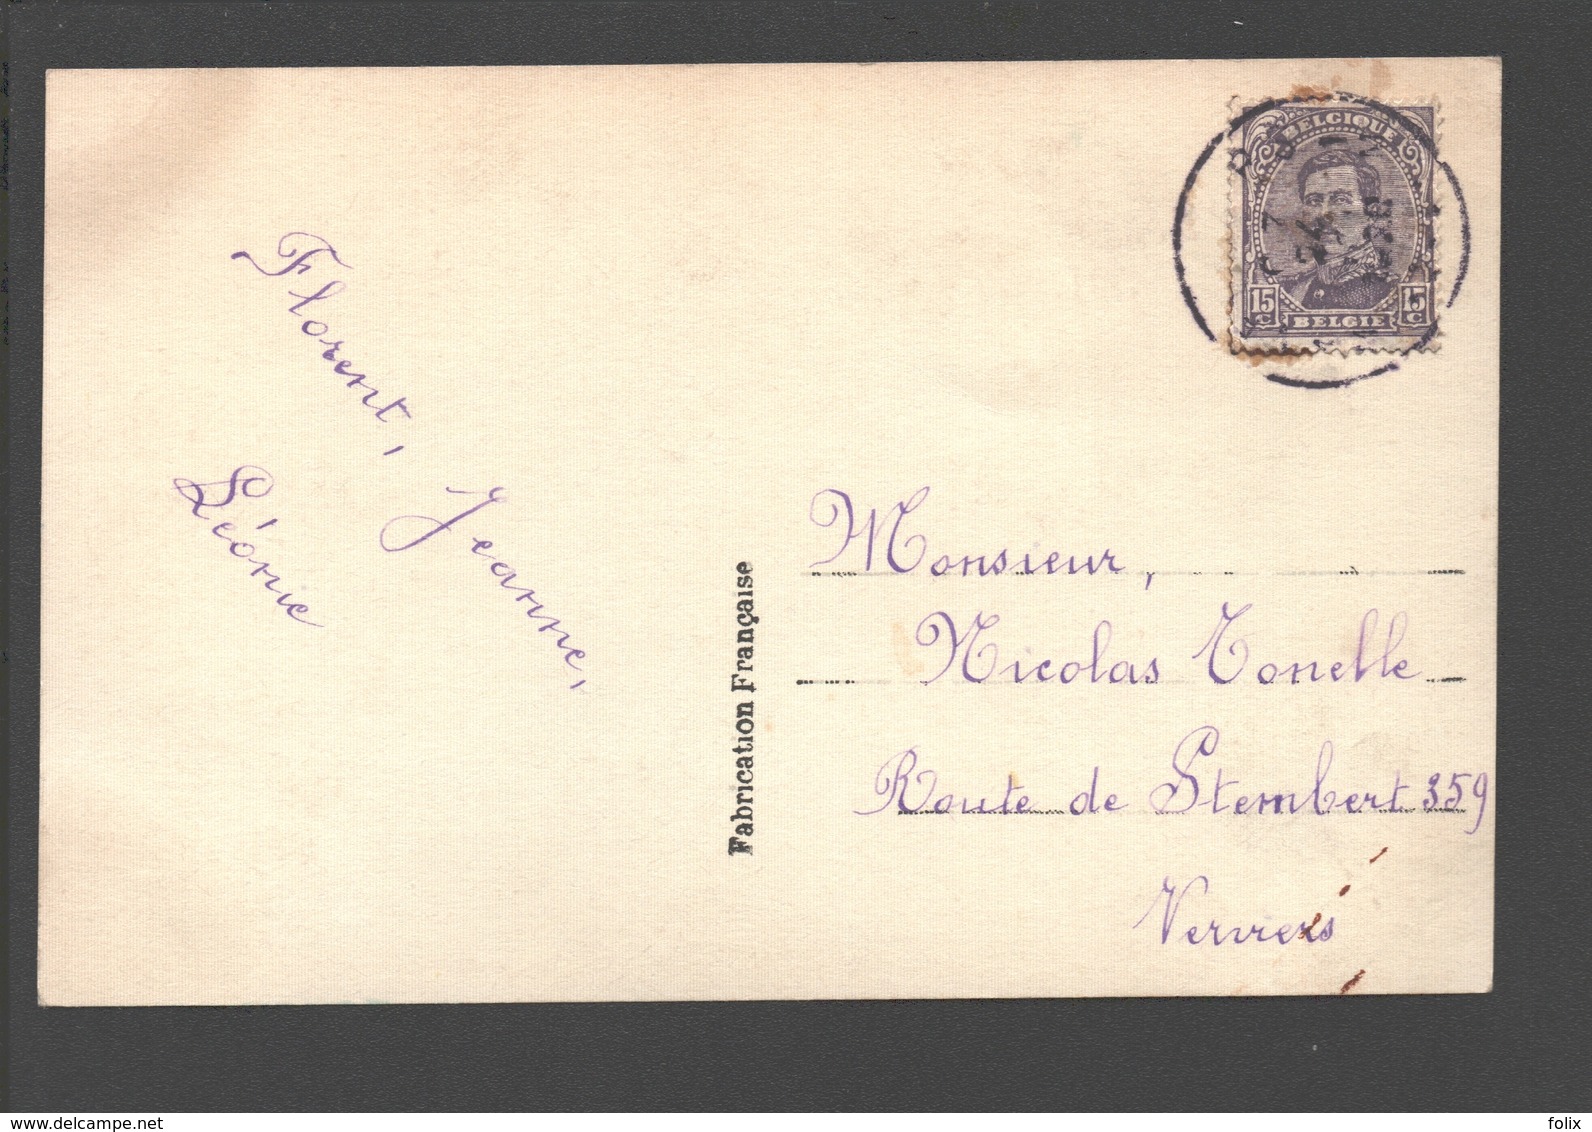 BELGIQUE
15 C 15 C
BELGIE
Florent,
Jeanne,
Léonie
Fabrication Française
Monsieur,
Nicolas Tonelle
Route de Stembert 359
Verviers
www.delcampe.net
folix